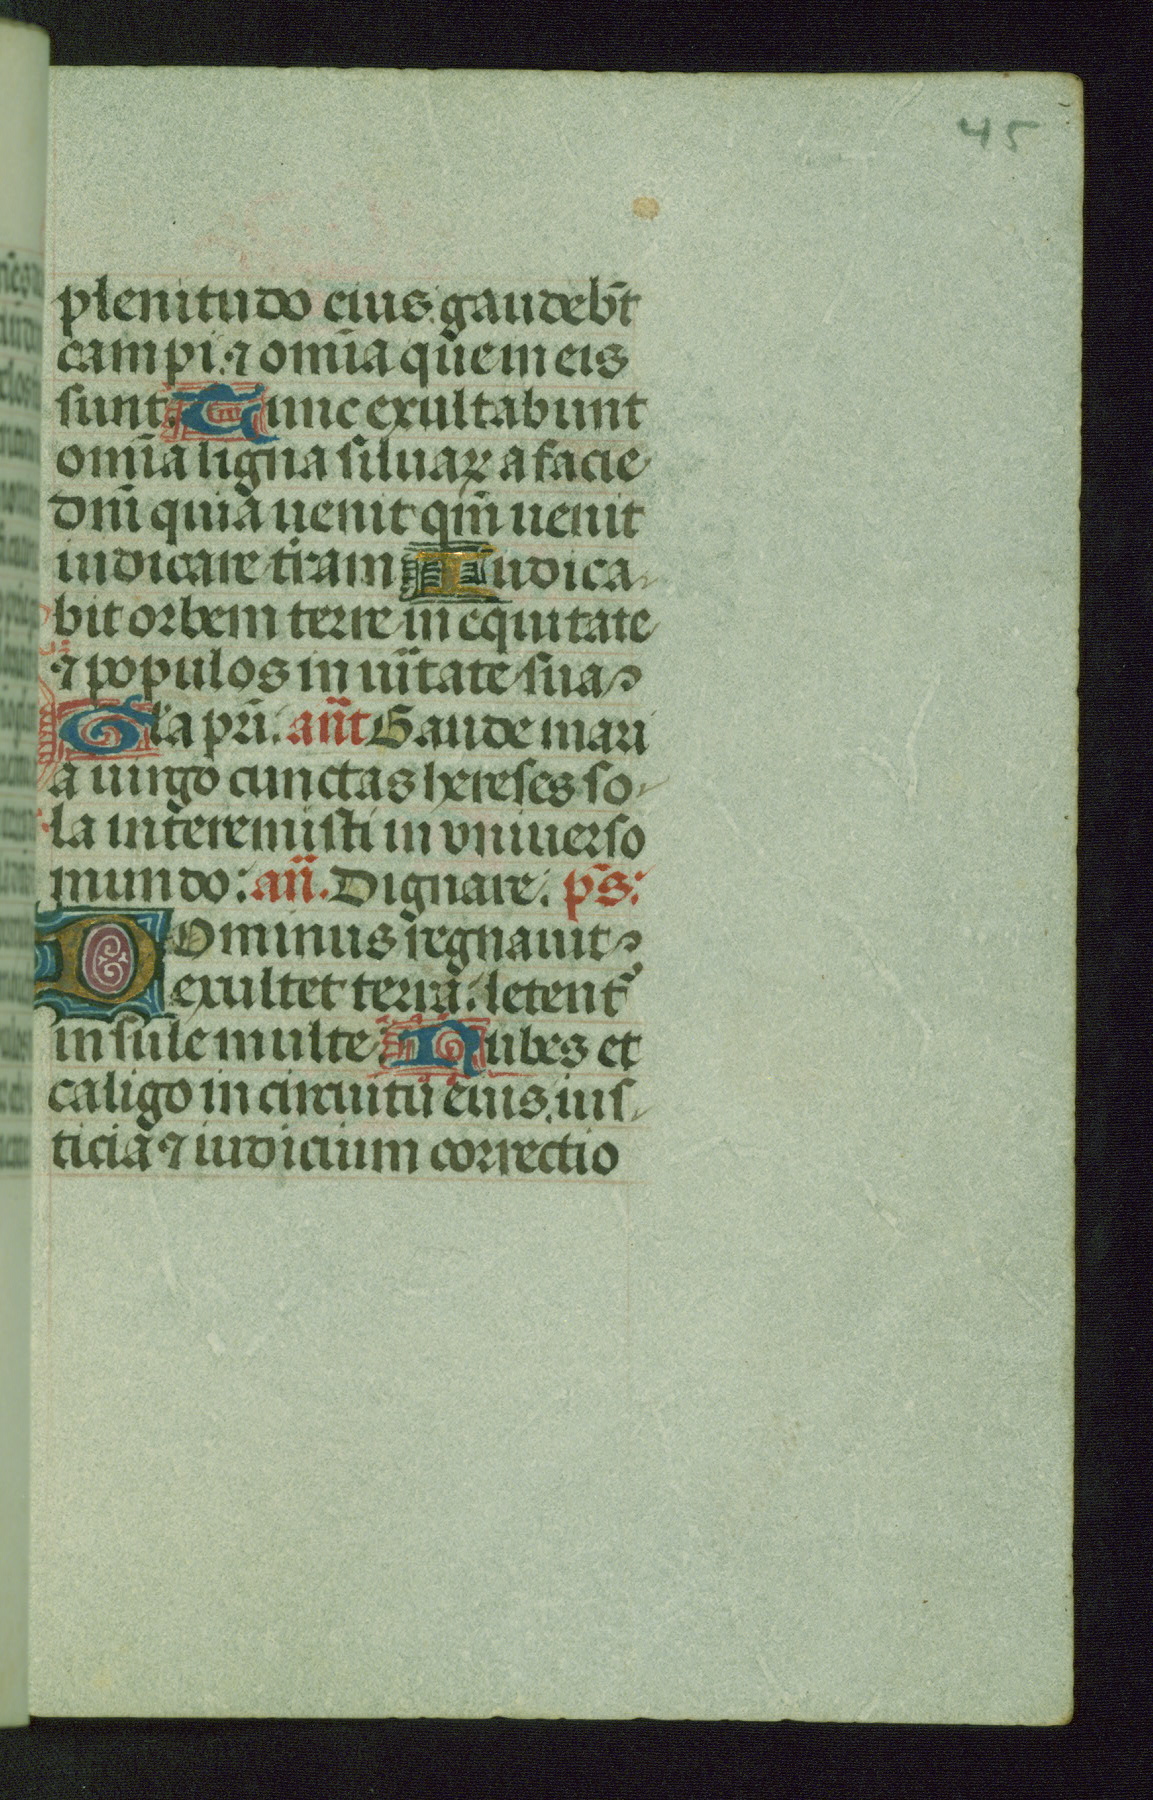 45
plenitudo eius. gaudeb̄t
campi. ⁊ om̄ia que in eis
sunt. Tunc exultabunt
om̄ia ligna siluaꝝ a facie
dn̄i quia uenit qm̄ uenit
iudicare t̄ram Iudica-
bit orbem terre in equitate
⁊ populos in ūitate sua
Gl̄a pr̄i. an̄t Gaude mari
a uirgo cunctas hereses so-
la interemisti in vniuerso
mundo: an̄. Dignare. ps̄:
Dominus regnauit
exultet terra. letent᷑
insule multe. Nubes et
caligo in circuitu eius. ius-
ticia ⁊ iudicium correctio